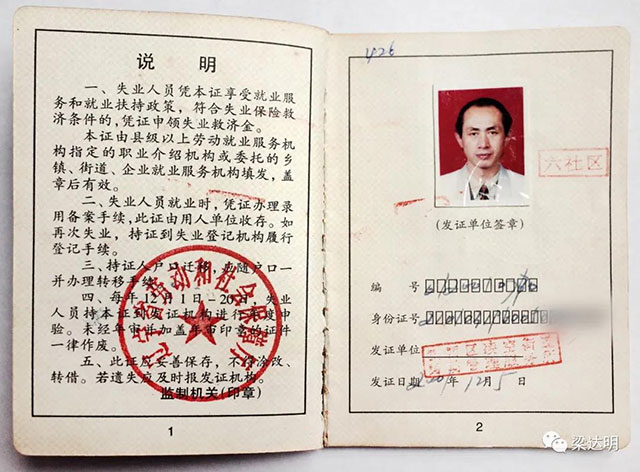 说 明
一、失业人员凭本证享受就业服
务和就业扶持政策，符合失业保险救
济条件的，凭证申领失业救济金。
本证由县级以上劳动就业服务机
构指定的职业介绍机构或委托的乡
镇、街道、企业就业服务机构填发，盖
章后有效。
二、失业人员就业时，凭证办理录
用备案手续，此证由用人单位收存。如
再次失业，持证到失业登记机构履行
登记手续。
三、持证人户口迁移，应随户口一
并办理转移手续。
四、每年12月1日－20日，失业
人员持本证到发证机构进行年度审
验。未经年审并加盖年审印章的证件
一律作废。
五、此证应妥善保存，不得涂改、
转借。若遗失应及时报发证机构。
监制机关（印章）
辽宁省劳动和社会保障厅
1
426
六社区
（发证单位签章）
编 号
身份证号
发证单位
发证日期 2001年12月5日
2
梁达明